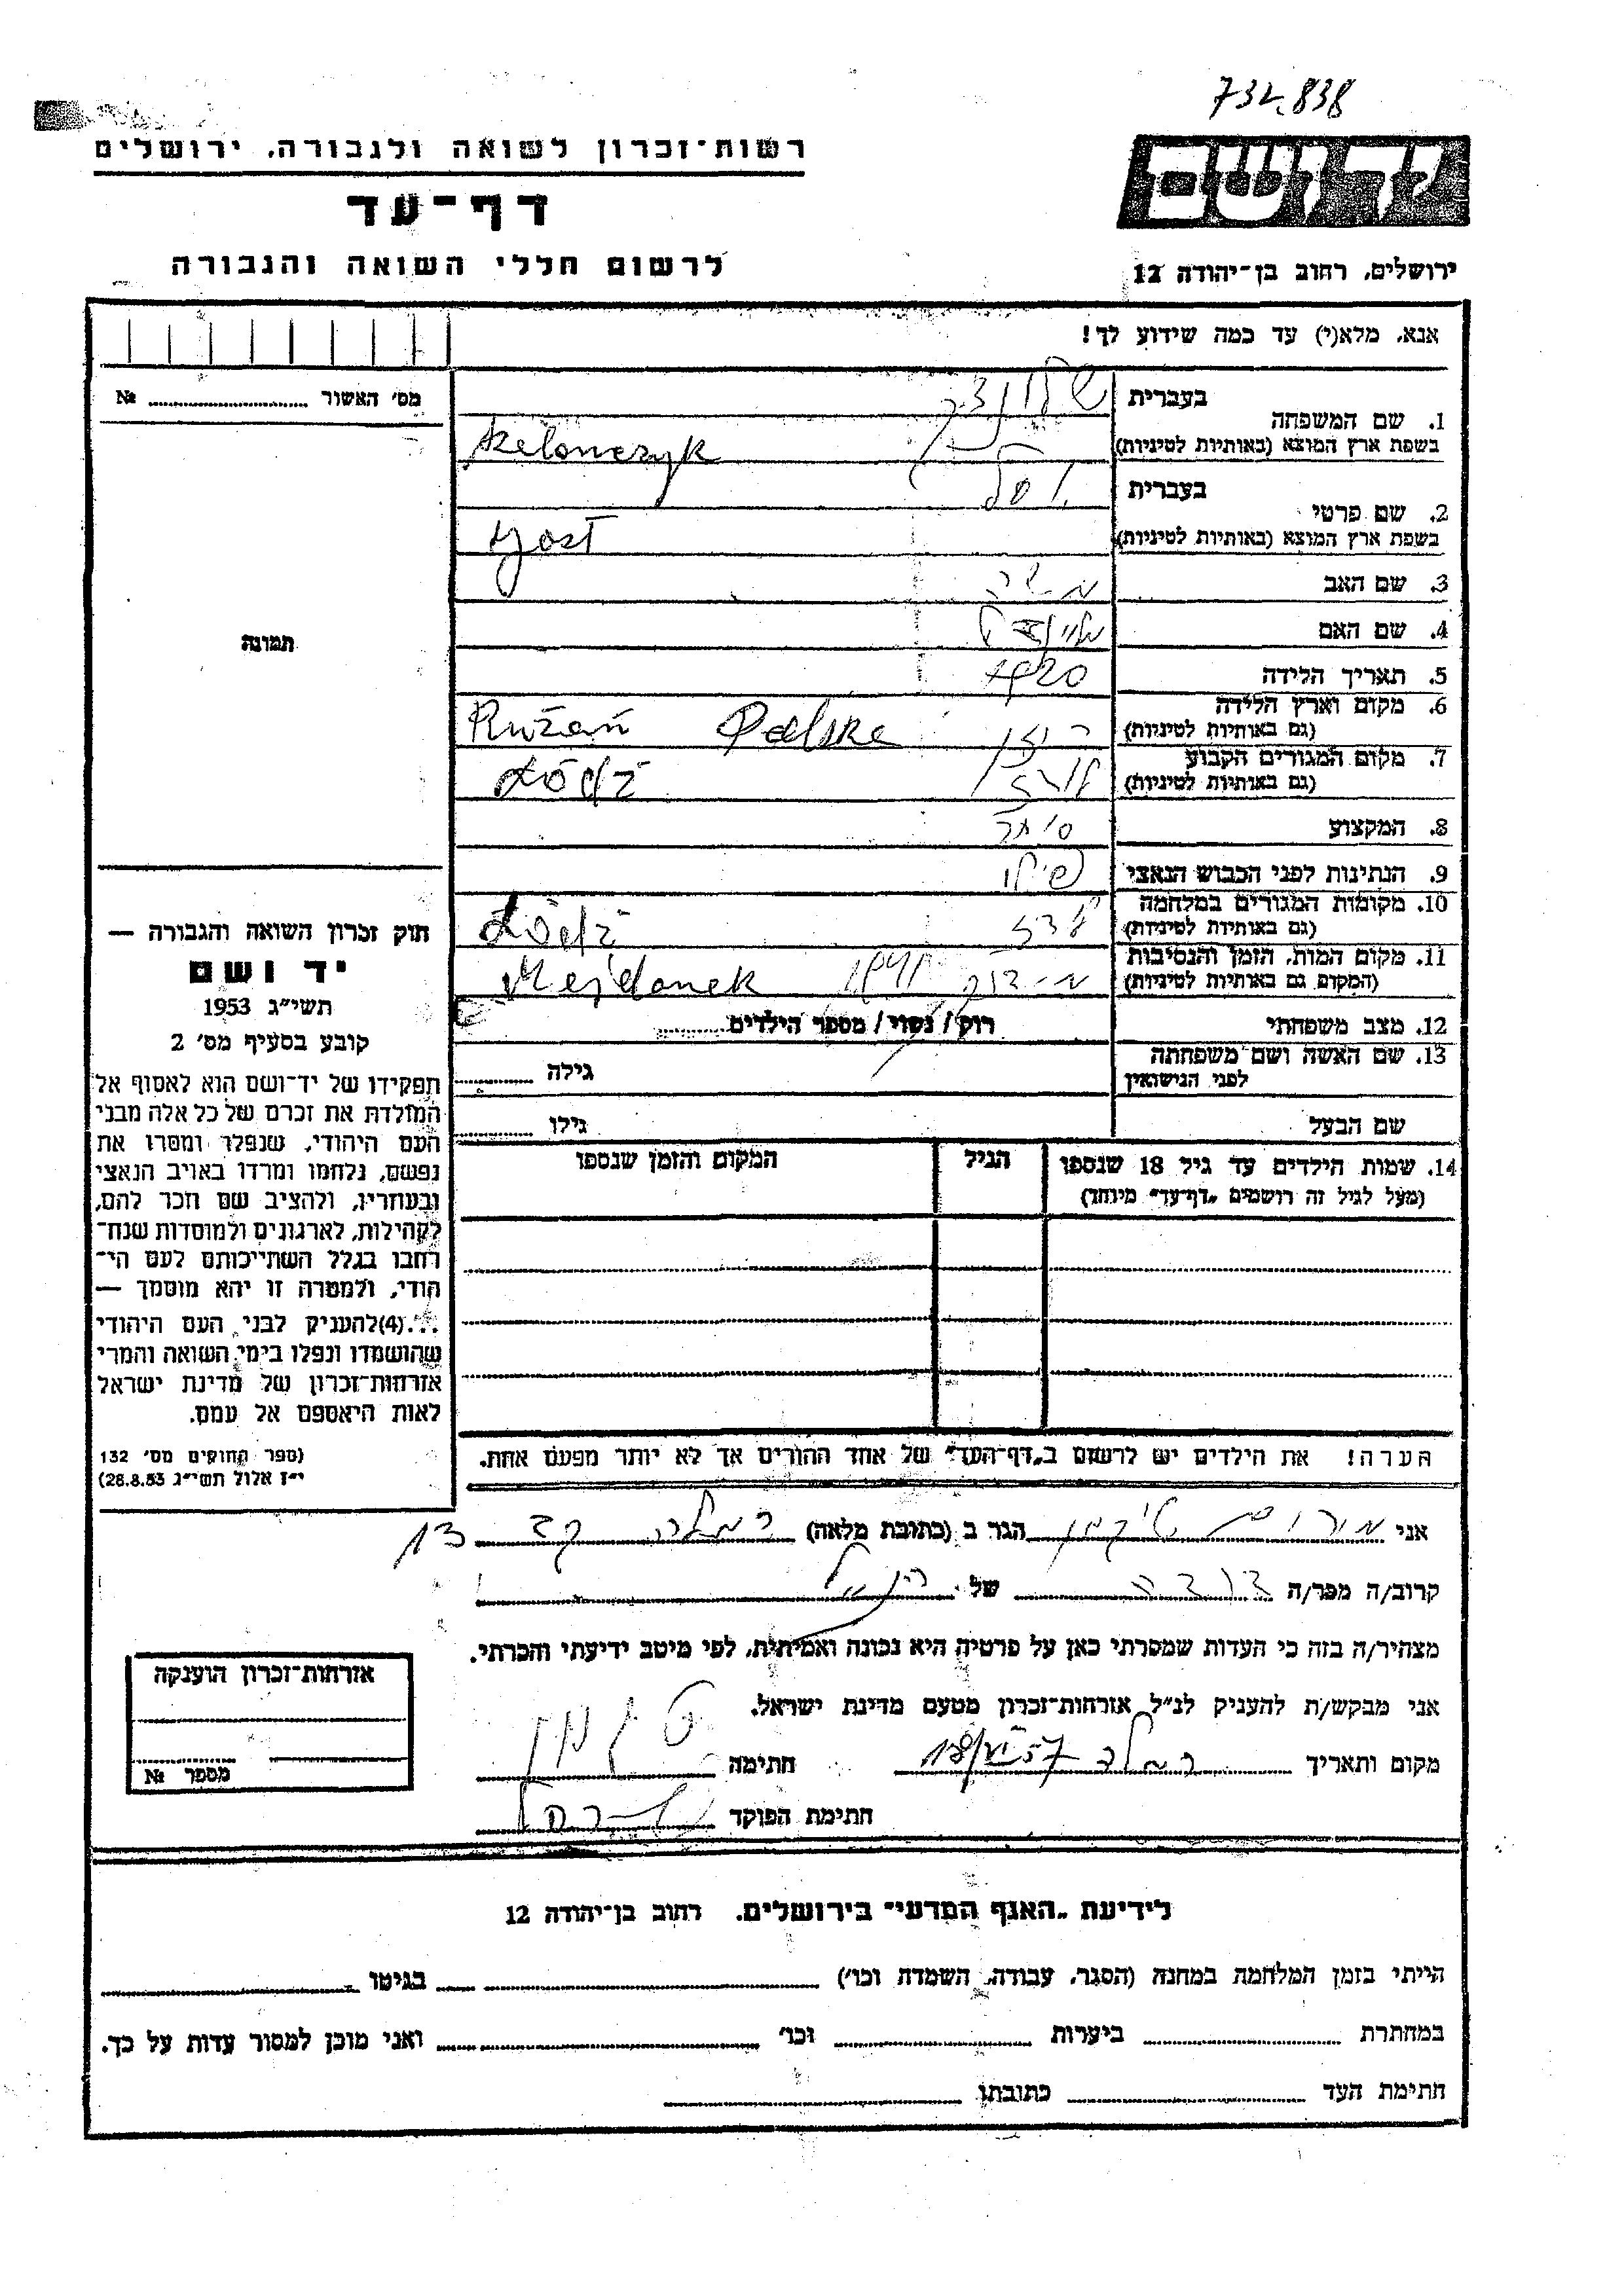 732.838
רשות־זכרון לשואה ולגבורה, ירושלים
דף־עד
לרשום חללי השואה והגבורה
יד ושם
ירושלים, רחוב בן־יהודה 12
אנא, מלא(י) עד כמה שידוע לך!
מס׳ האשור № 
תמונה
1. שם המשפחה
בעברית
בשפת ארץ המוצא (באותיות לטיניות) Szelonczyk
2. שם פרטי
בעברית יוסל
בשפת ארץ המוצא (באותיות לטיניות) Josl
3. שם האב משה
4. שם האם
5. תאריך הלידה 1920
6. מקום וארץ הלידה
(גם באותיות לטיניות) רוזן Rużań Polska
7. מקום המגורים הקבוע
(גם באותיות לטיניות) לודז Łódź
8. המקצוע
9. הנתינות לפני הכבוש הנאצי פולני
10. מקומות המגורים במלחמה
(גם באותיות לטיניות) לודז Łódź
11. מקום המות, הזמן והנסיבות
(המקום גם באותיות לטיניות) מיידנק 1941 Majdanek
12. מצב משפחתי רוק / נשוי / מספר הילדים
13. שם האשה ושם משפחתה
לפני הנישואין גילה
שם הבעל גילו
14. שמות הילדים עד גיל 18 שנספו
(מעל לגיל זה רושמים „דף־עד” מיוחד)
הגיל
המקום והזמן שנספו
הערה! את הילדים יש לרשום ב„דף־העד” של אחד ההורים אך לא יותר מפעם אחת.
חוק זכרון השואה והגבורה —
יד ושם
תשי״ג 1953
קובע בסעיף מס׳ 2
תפקידו של יד־ושם הוא לאסוף אל
המולדת את זכרם של כל אלה מבני
העם היהודי, שנפלו ומסרו את
נפשם, נלחמו ומרדו באויב הנאצי
ובעוזריו, ולהציב שם וזכר להם,
לקהילות, לארגונים ולמוסדות שנח־
רבו בגלל השתייכותם לעם הי־
הודי, ולמטרה זו יהא מוסמך —
...(4) להעניק לבני העם היהודי
שהושמדו ונפלו בימי השואה והמרי
אזרחות־זכרון של מדינת ישראל
לאות היאספם אל עמם.
(ספר החוקים מס׳ 132
י״ז אלול תשי״ג 28.8.53)
אני הגר ב (כתובת מלאה) רמלה 13
קרוב/ה מכר/ה של
מצהיר/ה בזה כי העדות שמסרתי כאן על פרטיה היא נכונה ואמיתית, לפי מיטב ידיעתי והכרתי.
אני מבקש/ת להעניק לנ״ל אזרחות־זכרון מטעם מדינת ישראל.
מקום ותאריך רמלה 18/VI 57 חתימה
חתימת הפוקד
אזרחות־זכרון הוענקה
מספר №
לידיעת „האגף המדעי” בירושלים, רחוב בן־יהודה 12
הייתי בזמן המלחמה במחנה (הסגר, עבודה, השמדה וכו׳) בגיטו
במחתרת ביערות וכו׳ ואני מוכן למסור עדות על כך.
חתימת העד כתובתו